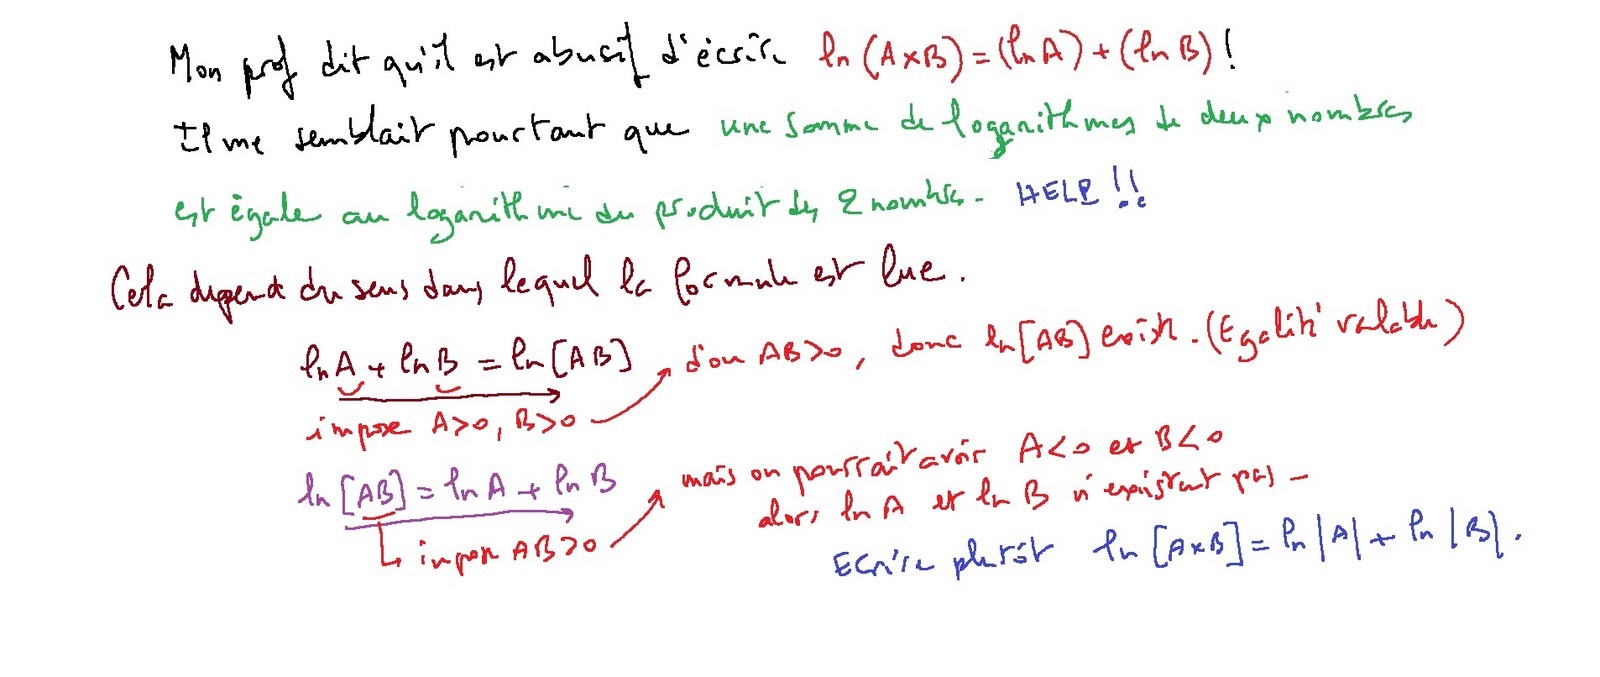 Mon prof dit qu'il est abusif d'écrire ln (A×B) = (ln A) + (ln B) !
Il me semblait pourtant que une somme de logarithmes de deux nombres
est égale au logarithme du produit des 2 nombres. HELP !!
Cela dépend du sens dans lequel la formule est lue.
ln A + ln B = ln [AB] d'où AB>0, donc ln [AB] existe. (Egalité valable)
impose A>0, B>0
ln [AB] = ln A + ln B mais on pourrait avoir A<0 et B<0
alors ln A et ln B n'existent pas -
impose AB>0
Ecrire plutôt ln [A×B] = ln |A| + ln |B|.